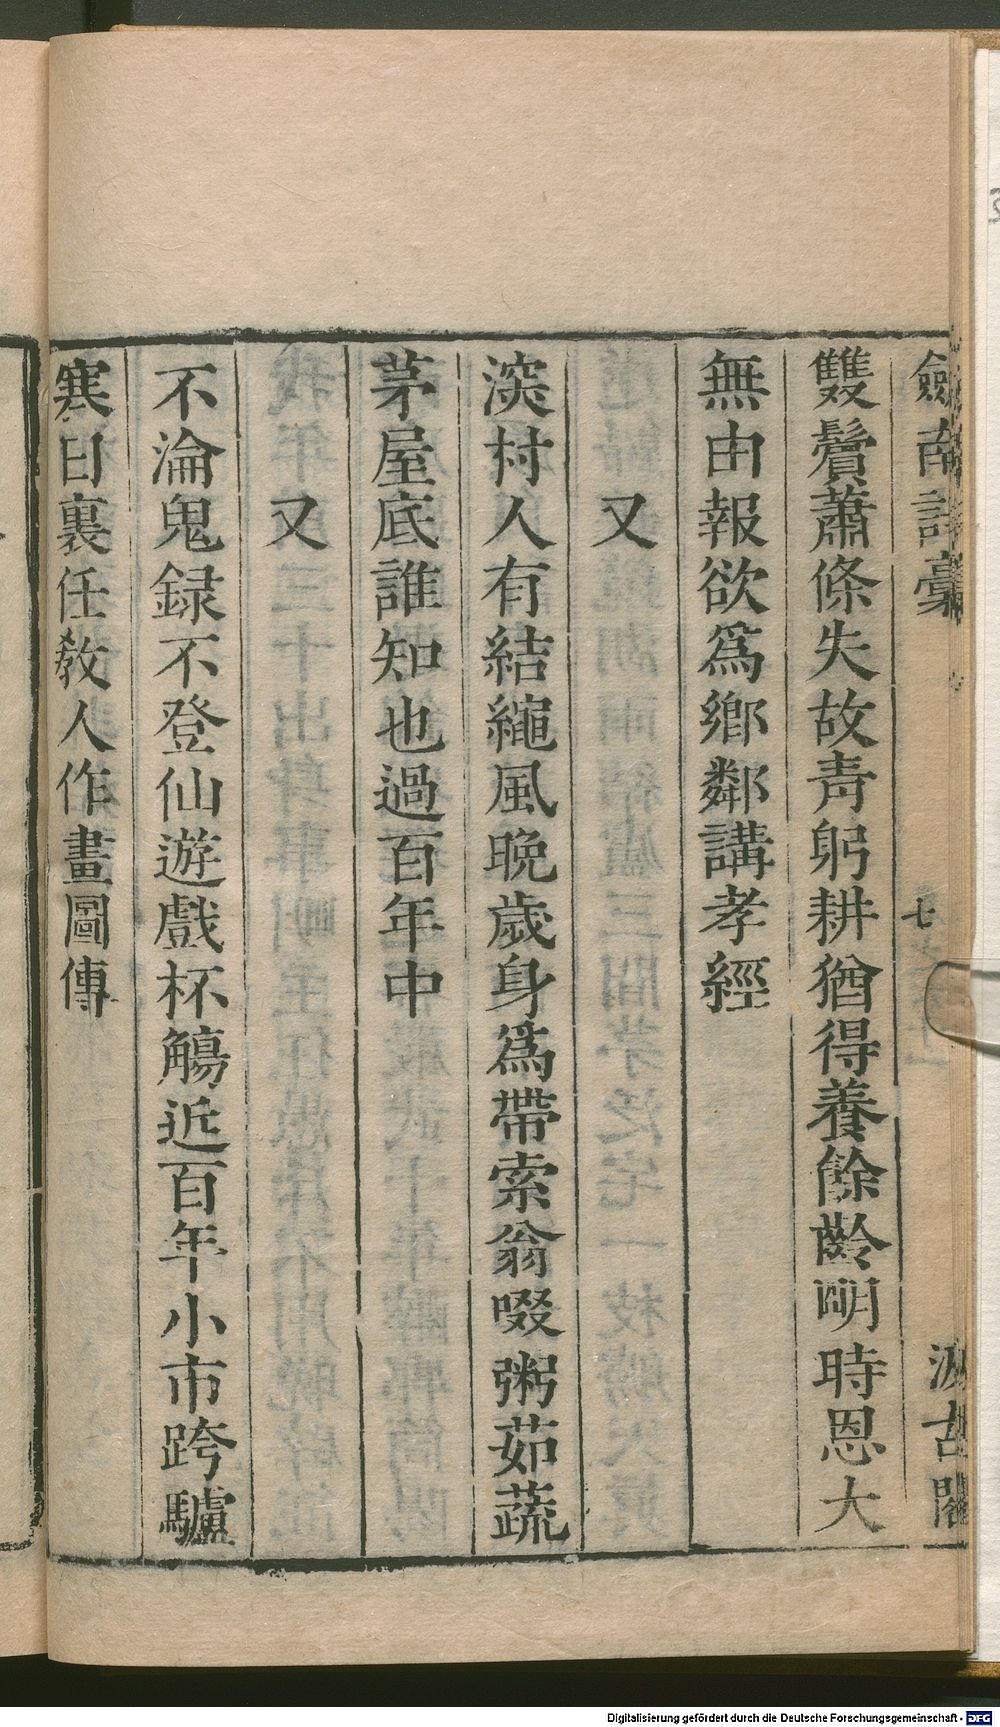 劒南詩稾
七
汲古閣
雙鬢蕭條失故靑躬耕猶得養餘齡明時恩大
無由報欲爲鄉鄰講孝經
又
湥村人有結繩風晚歲身爲帶索翁啜粥茹蔬
茅屋底誰知也過百年中
又
不淪鬼録不登仙遊戲杯觴近百年小市跨驢
寒日裏任敎人作畫圖傳
Digitalisierung gefördert durch die Deutsche Forschungsgemeinschaft - DFG